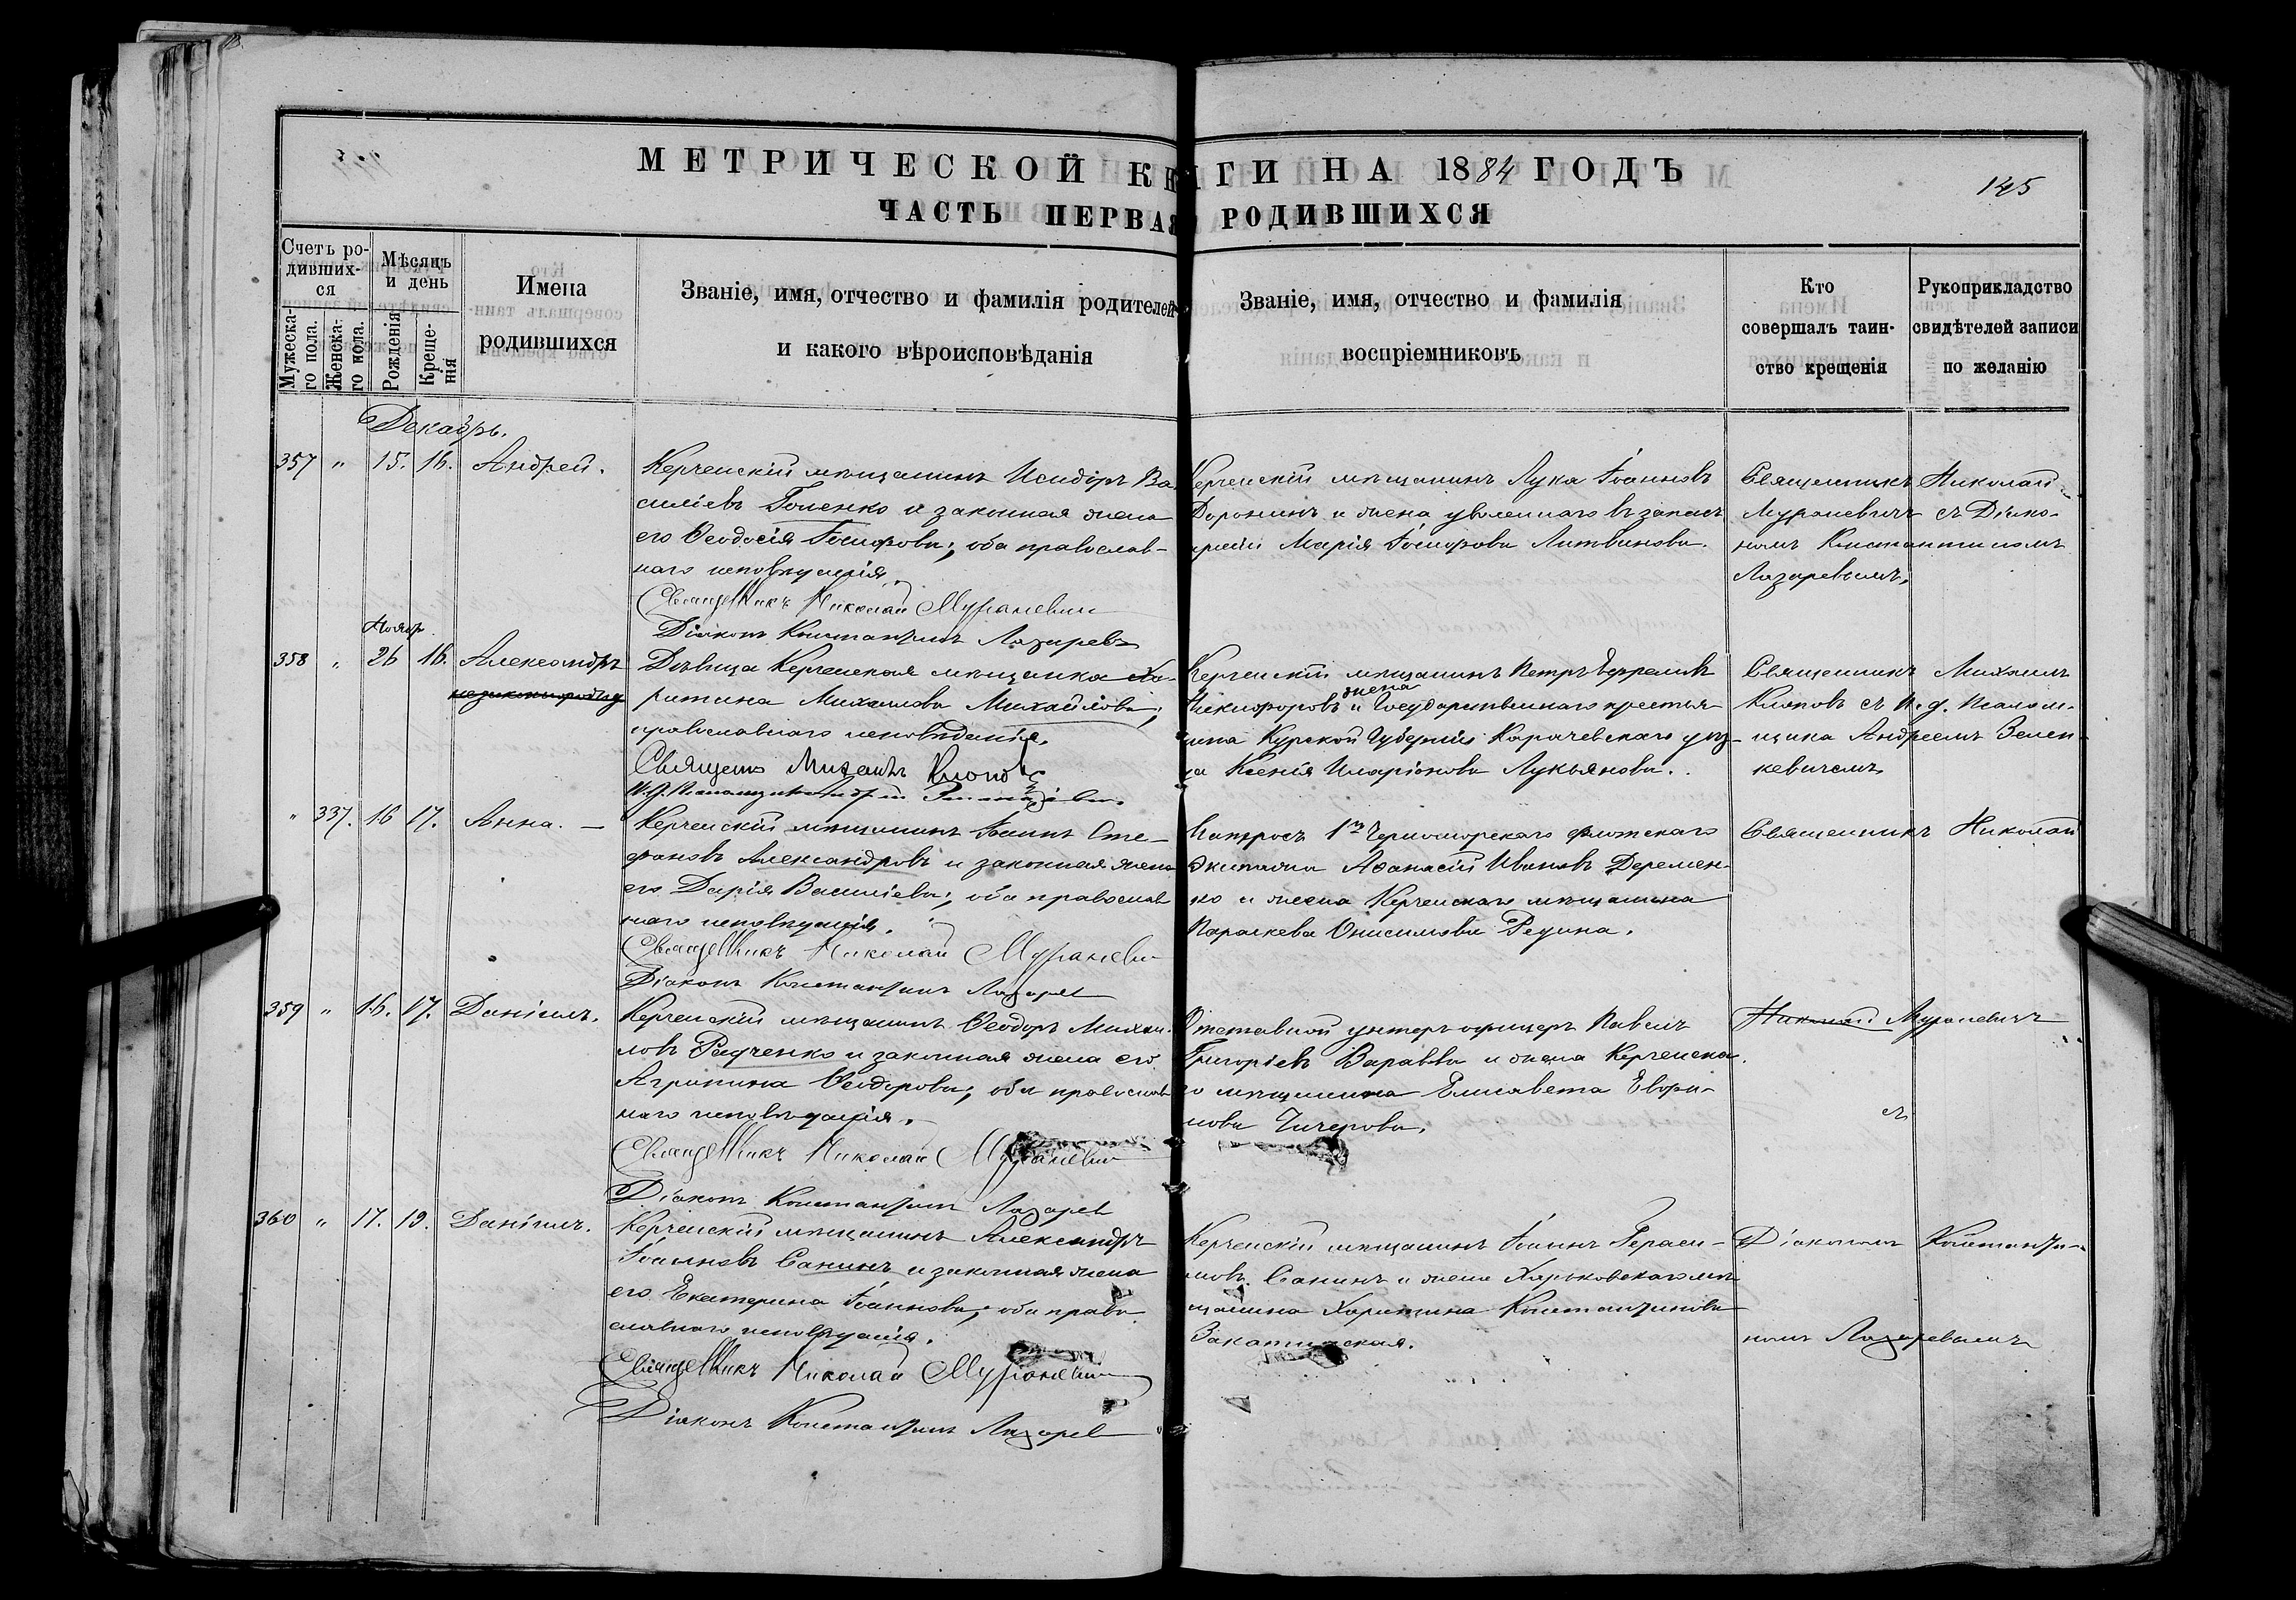 МЕТРИЧЕСКОЙ КНИГИ НА 1884 ГОДЪ
145
ЧАСТЬ ПЕРВАЯ РОДИВШИХСЯ
Счетъ ро-
дивших-
ся
Мужеска-
го пола.
Женска-
го пола.
Мѣсяцъ
и день
Рожденія
Креще-
нія
Имена
родившихся
Званіе, имя, отчество и фамилія родителей
и какого вѣроисповѣданія
Званіе, имя, отчество и фамилія
воспріемниковъ
Кто
совершалъ таин-
ство крещенія
Рукоприкладство
свидѣтелей записи
по желанію
Декабрь.
357 " 15. 16. Андрей.
Керченскій мѣщанинъ Исидоръ Ва-
силіевъ Голенко и законная жена
его Ѳеодосія; оба православ-
наго исповѣданія.
Священникъ Николай Мураневич
Діаконъ Константинъ Лазаревъ
Керченскій мѣщанинъ Лука Іоанновъ
Доронинъ и жена уволеннаго въ запасъ
арміи Марія Литвинова.
Священникъ Николай
Мураневичъ съ Діако-
номъ Константиномъ
Лазаревымъ.
Ноябр.
358 " 26 16. Александръ
незаконнорожд
Дѣвица Керченская мѣщанка Ха-
ритина Михаилова Михайлова;
православнаго исповѣданія.
Священ Михаилъ Клоповъ
И.д. Псаломщика Андрей
Керченскій мѣщанинъ Петръ Ефремовъ
Никифоровъ и жена Государственнаго крестья-
нина Курской Губерніи Карачевскаго уѣз-
да Ксенія Иларіонова Лукьянова.
Священникъ Михаилъ
Клоповъ съ И.д. Псалом-
щика Андреемъ Зелен-
кевичемъ
" 337. 16 17. Анна. —
Керченскій мѣщанинъ Іоаннъ Сте-
фановъ Александровъ и законная жена
его Дарія Василіева; оба православ
наго исповѣданія.
Священникъ Николай Мураневич
Діаконъ Константинъ Лазарев
Матросъ 1го Черноморскаго флотскаго
Экипажа Аѳанасій Ивановъ Деремен-
ко и жена Керченскаго мѣщанина
Параскева Онисимова Редина.
Священникъ Николай
359 " 16. 17. Даніилъ.
Керченскій мѣщанинъ Ѳеодоръ Михаи-
ловъ Радченко и законная жена его
Агрипина Ѳеодорова; оба православ
наго исповѣданія.
Священникъ Николай Мураневич
Діаконъ Константинъ Лазарев
Отставной унтеръ офицеръ Павелъ
Григоріевъ Варавва и жена Керченска-
го мѣщанина Елисавета
Чичерова.
Николай Мураневичъ
съ
360 " 17. 19. Даніилъ.
Керченскій мѣщанинъ Александръ
Іоанновъ Санинъ и законная жена
его Екатерина Іоаннова; оба право-
славнаго исповѣданія.
Священникъ Николай Мураневич
Діаконъ Константинъ Лазарев
Керченскій мѣщанинъ Іоаннъ Гераси-
мовъ Санинъ и жена Харьковскаго мѣ
щанина Харитина Константинова
Діакономъ Константи-
номъ Лазаревымъ